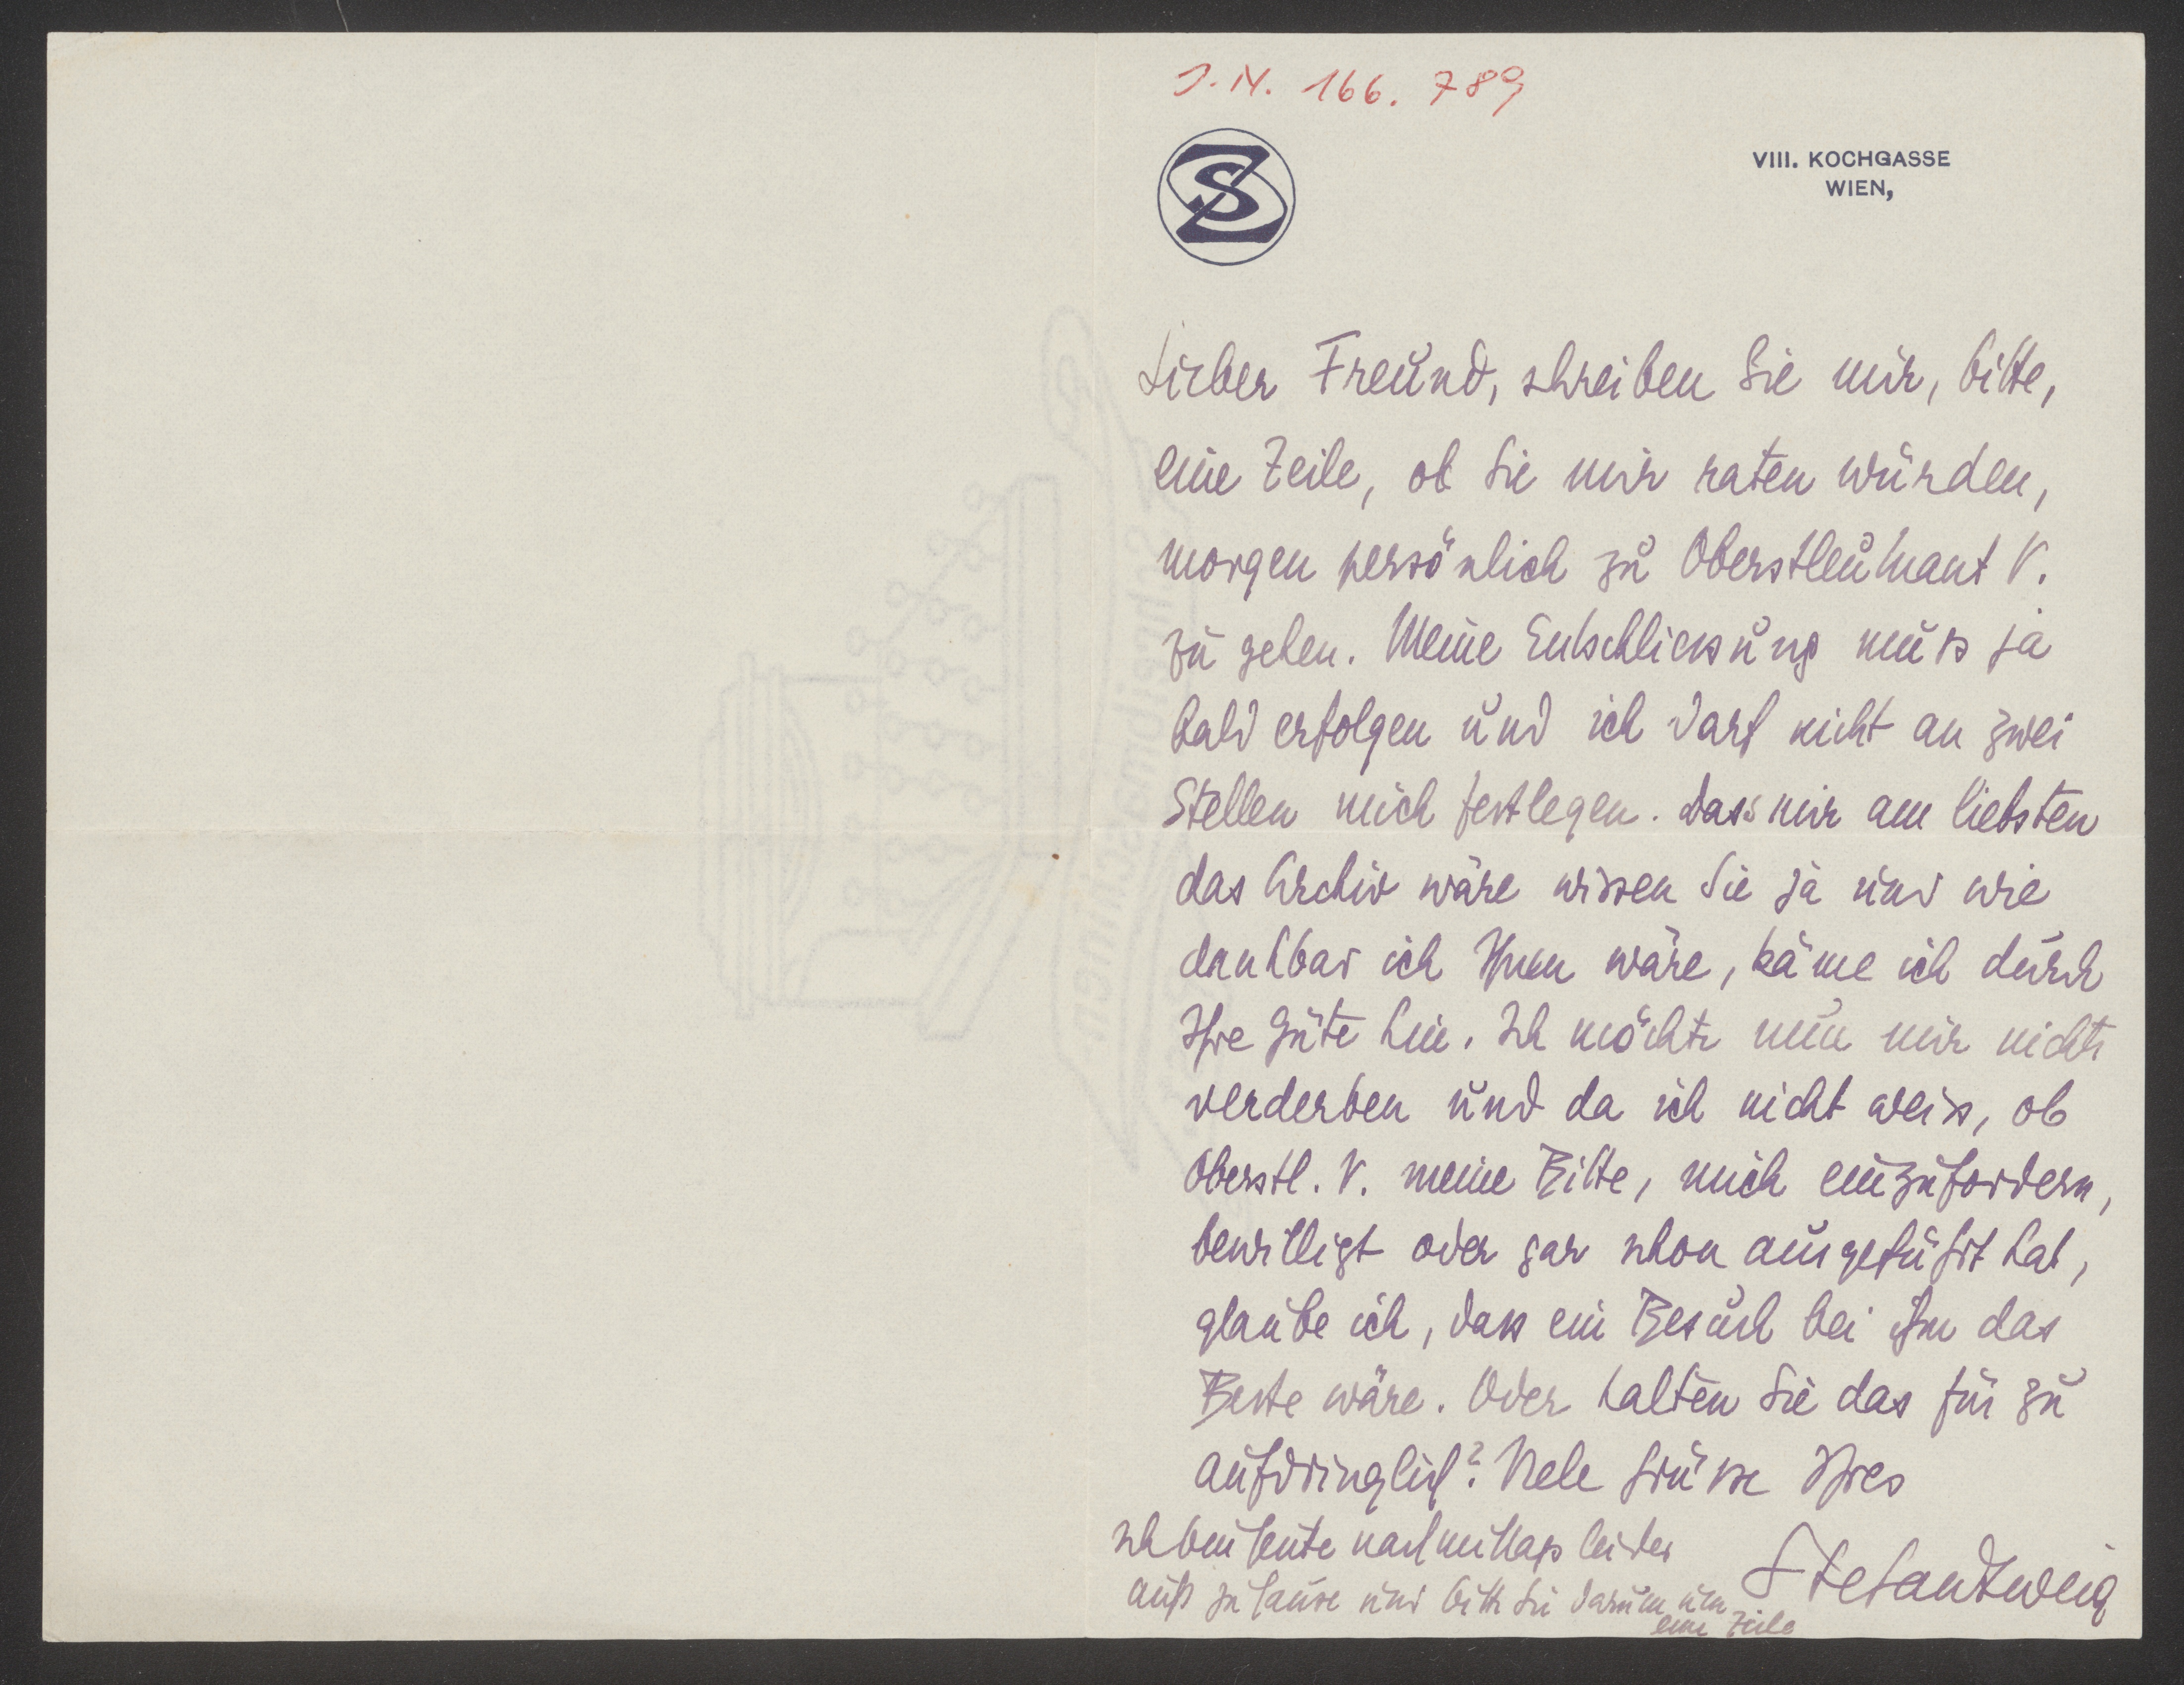 J.N. 166.789
SZ
VIII. KOCHGASSE
WIEN,
Lieber Freund, schreiben Sie mir, bitte,
eine Zeile, ob Sie mir raten würden,
morgen persönlich zu Oberstleutnant V.
zu gehen. Meine Entschliessung muss ja
bald erfolgen und ich darf nicht an zwei
Stellen mich festlegen. Dass mir am liebsten
das Archiv wäre wissen Sie ja und wie
dankbar ich Ihnen wäre, käme ich durch
Ihre Güte hin. Ich möchte nun mir nichts
verderben und da ich nicht weiss, ob
Oberstl. V. meine Bitte, mich einzufordern,
bewilligt oder gar schon ausgeführt hat,
glaube ich, dass ein Besuch bei ihm das
Beste wäre. Oder halten Sie das für zu
aufdringlich? Viele Grüsse Ihres
Stefan Zweig
Ich bin heute nachmittags leider
nicht zuhause und bitte Sie darum um
eine Zeile